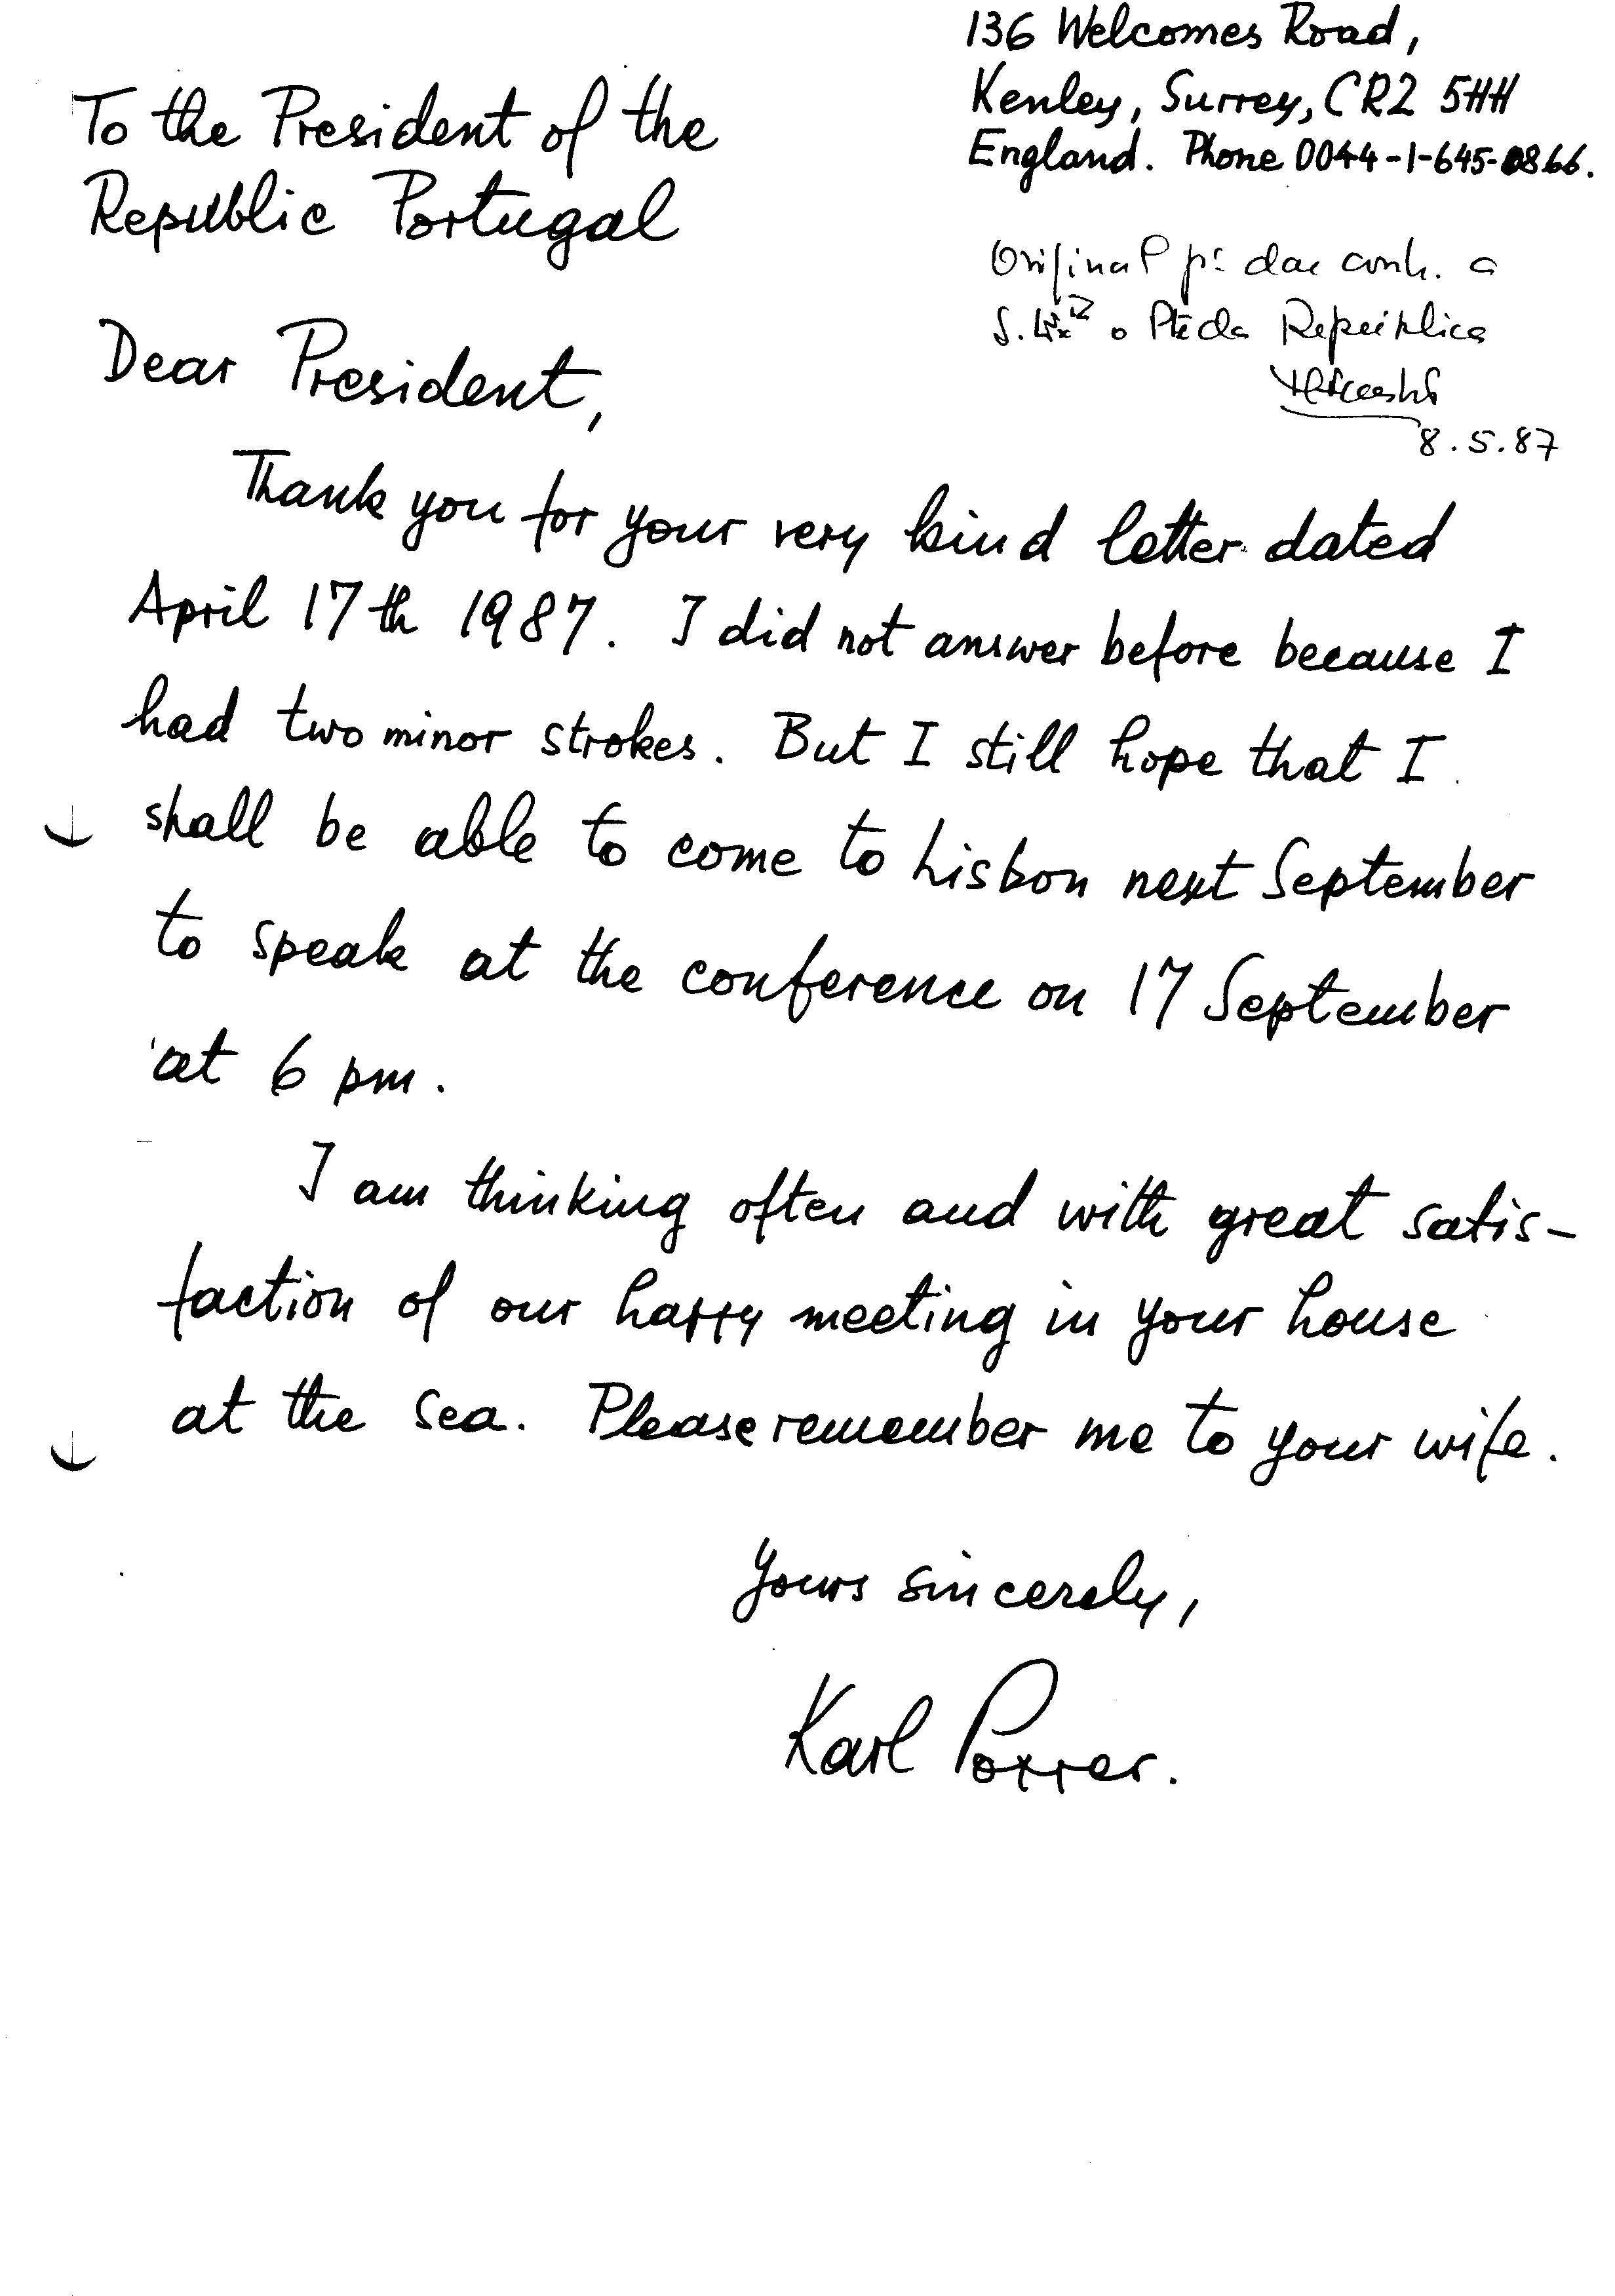 136 Welcomes Road,
Kenley, Surrey, CR2 5HH
England. Phone 0044-1-645-0866.
To the President of the
Republic Portugal
Original pª dar conh. a
S. Exª o P.te da República
8.5.87
Dear President,
Thank you for your very kind letter dated
April 17th 1987. I did not answer before because I
had two minor strokes. But I still hope that I
shall be able to come to Lisbon next September
to speak at the conference on 17 September
at 6 pm.
I am thinking often and with great satis-
faction of our happy meeting in your house
at the sea. Please remember me to your wife.
Yours sincerely,
Karl Popper.